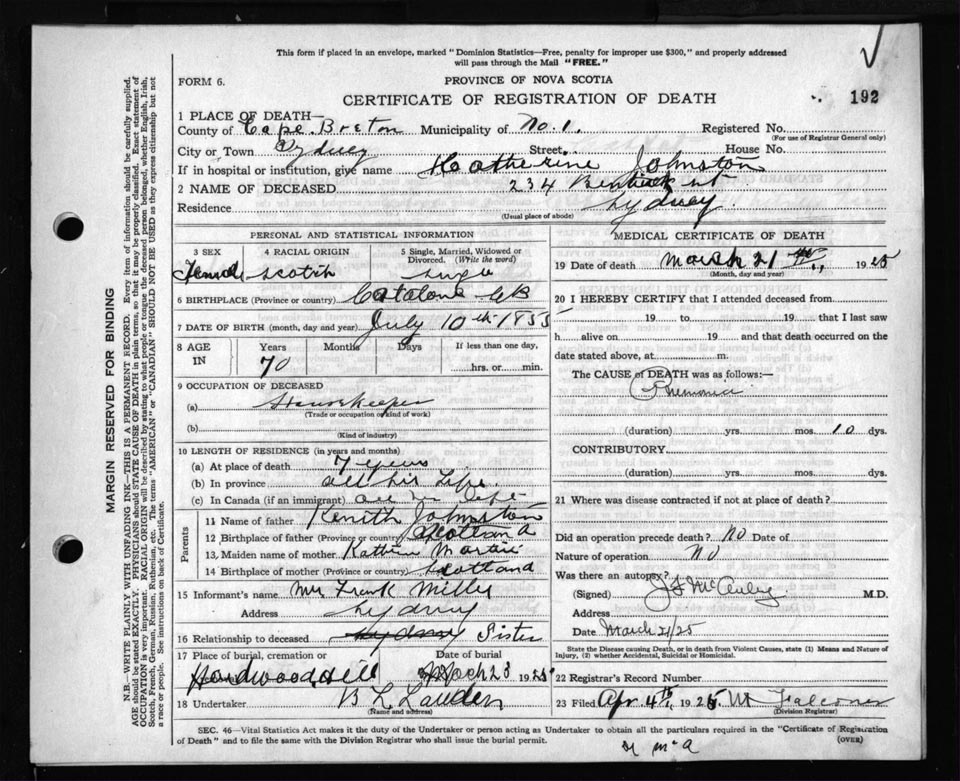 This form if placed in an envelope, marked "Dominion Statistics—Free, penalty for improper use $300," and properly addressed
will pass through the Mail "FREE."
FORM 6.
PROVINCE OF NOVA SCOTIA
CERTIFICATE OF REGISTRATION OF DEATH
192
1 PLACE OF DEATH—
County of Cape Breton Municipality of No. 1. Registered No.
(For use of Registrar General only)
City or Town Sydney Street House No.
If in hospital or institution, give name Katherine Johnston
2 NAME OF DECEASED 234 Bentinck st.
Residence Sydney.
(Usual place of abode)
PERSONAL AND STATISTICAL INFORMATION
3 SEX 4 RACIAL ORIGIN 5 Single, Married, Widowed or
Divorced. (Write the word)
Female Scotch Single
6 BIRTHPLACE (Province or country) Catalone CB
7 DATE OF BIRTH (month, day and year) July 10th 1855
8 AGE IN Years Months Days If less than one day,
70 hrs. or min.
9 OCCUPATION OF DECEASED
(a) Housekeeper
(Trade or occupation or kind of work)
(b)
(Kind of industry)
10 LENGTH OF RESIDENCE (in years and months)
(a) At place of death 7 years
(b) In province all his Life.
(c) In Canada (if an immigrant) life
Parents
11 Name of father Kenith Johnston
12 Birthplace of father (Province or country)
13, Maiden name of mother Kathrine
14 Birthplace of mother (Province or country) Scotland
15 Informant's name Mrs Frank
Address Sydney
16 Relationship to deceased Sydney Sister
17 Place of burial, cremation or Date of burial
Hardwood Hill Mch 23 1925
18 Undertaker B L Lauder
(Name and address)
MEDICAL CERTIFICATE OF DEATH
19 Date of death March 21 1925
(Month, day and year)
20 I HEREBY CERTIFY that I attended deceased from
19 to 19 that I last saw
h alive on 19 and that death occurred on the
date stated above, at m.
The CAUSE of DEATH was as follows:—
Pneumonia
(duration) yrs. mos. 10 dys.
CONTRIBUTORY
(duration) yrs. mos. dys.
21 Where was disease contracted if not at place of death?
Did an operation precede death? NO Date of
Nature of operation NO
Was there an autopsy?
(Signed) M.D.
Address
Date March 21/25
State the Disease causing Death, or in death from Violent Causes, state (1) Means and Nature of
Injury, (2) whether Accidental, Suicidal or Homicidal.
22 Registrar's Record Number
23 Filed Apr 4th, 1925. M Falconer
(Division Registrar)
SEC. 46—Vital Statistics Act makes it the duty of the Undertaker or person acting as Undertaker to obtain all the particulars required in the "Certificate of Registration
of Death" and to file the same with the Division Registrar who shall issue the burial permit. (OVER)
MARGIN RESERVED FOR BINDING
N.B.—WRITE PLAINLY WITH UNFADING INK—THIS IS A PERMANENT RECORD. Every item of information should be carefully supplied.
AGE should be stated EXACTLY. PHYSICIANS should STATE CAUSE OF DEATH in plain terms, so that it may be properly classified. Exact statement of
OCCUPATION is very important. RACIAL ORIGIN will be described by stating to what people or tongue the deceased person belonged, whether English, Irish,
Scotch, French, German, Russian, Ruthenian, etc. The terms "AMERICAN" or "CANADIAN" SHOULD NOT BE USED as they express citizenship but not
a race or people. See instructions on back of Certificate.